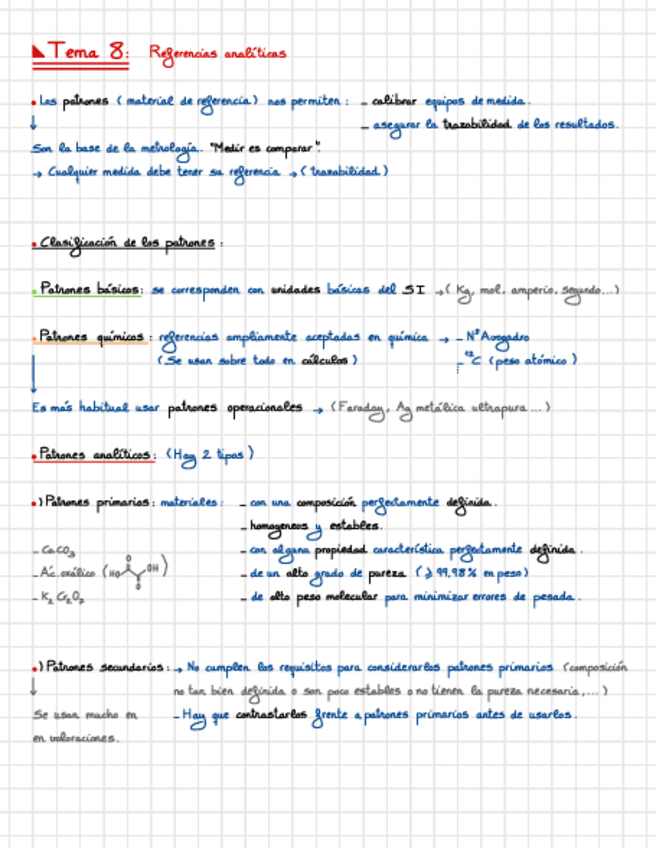 Tema 8: Referencias analíticas
• Los patrones (material de referencia) nos permiten: - calibrar equipos de medida.
- asegurar la trazabilidad de los resultados.
Son la base de la metrología. "Medir es comparar".
→ Cualquier medida debe tener su referencia → (trazabilidad)
• Clasificación de los patrones:
• Patrones básicos: se corresponden con unidades básicas del SI → (Kg, mol, amperio, segundo...)
• Patrones químicos: referencias ampliamente aceptadas en química → - Nº Avogadro
(Se usan sobre todo en cálculos) - ¹²C (peso atómico)
Es más habitual usar patrones operacionales → (Faraday, Ag metálica ultrapura...)
• Patrones analíticos: (Hay 2 tipos)
•) Patrones primarios: materiales: - con una composición perfectamente definida.
- homogeneos y estables.
- CaCO₃ - con alguna propiedad característica perfectamente definida.
- Ác. oxálico (HO O O OH) - de un alto grado de pureza (≥ 99,98% en peso)
- K₂Cr₂O₇ - de alto peso molecular para minimizar errores de pesada.
•) Patrones secundarios: → No cumplen los requisitos para considerarlos patrones primarios (composición
no tan bien definida o son poco estables o no tienen la pureza necesaria,...)
Se usan mucho en - Hay que contrastarlos frente a patrones primarios antes de usarlos.
en valoraciones.